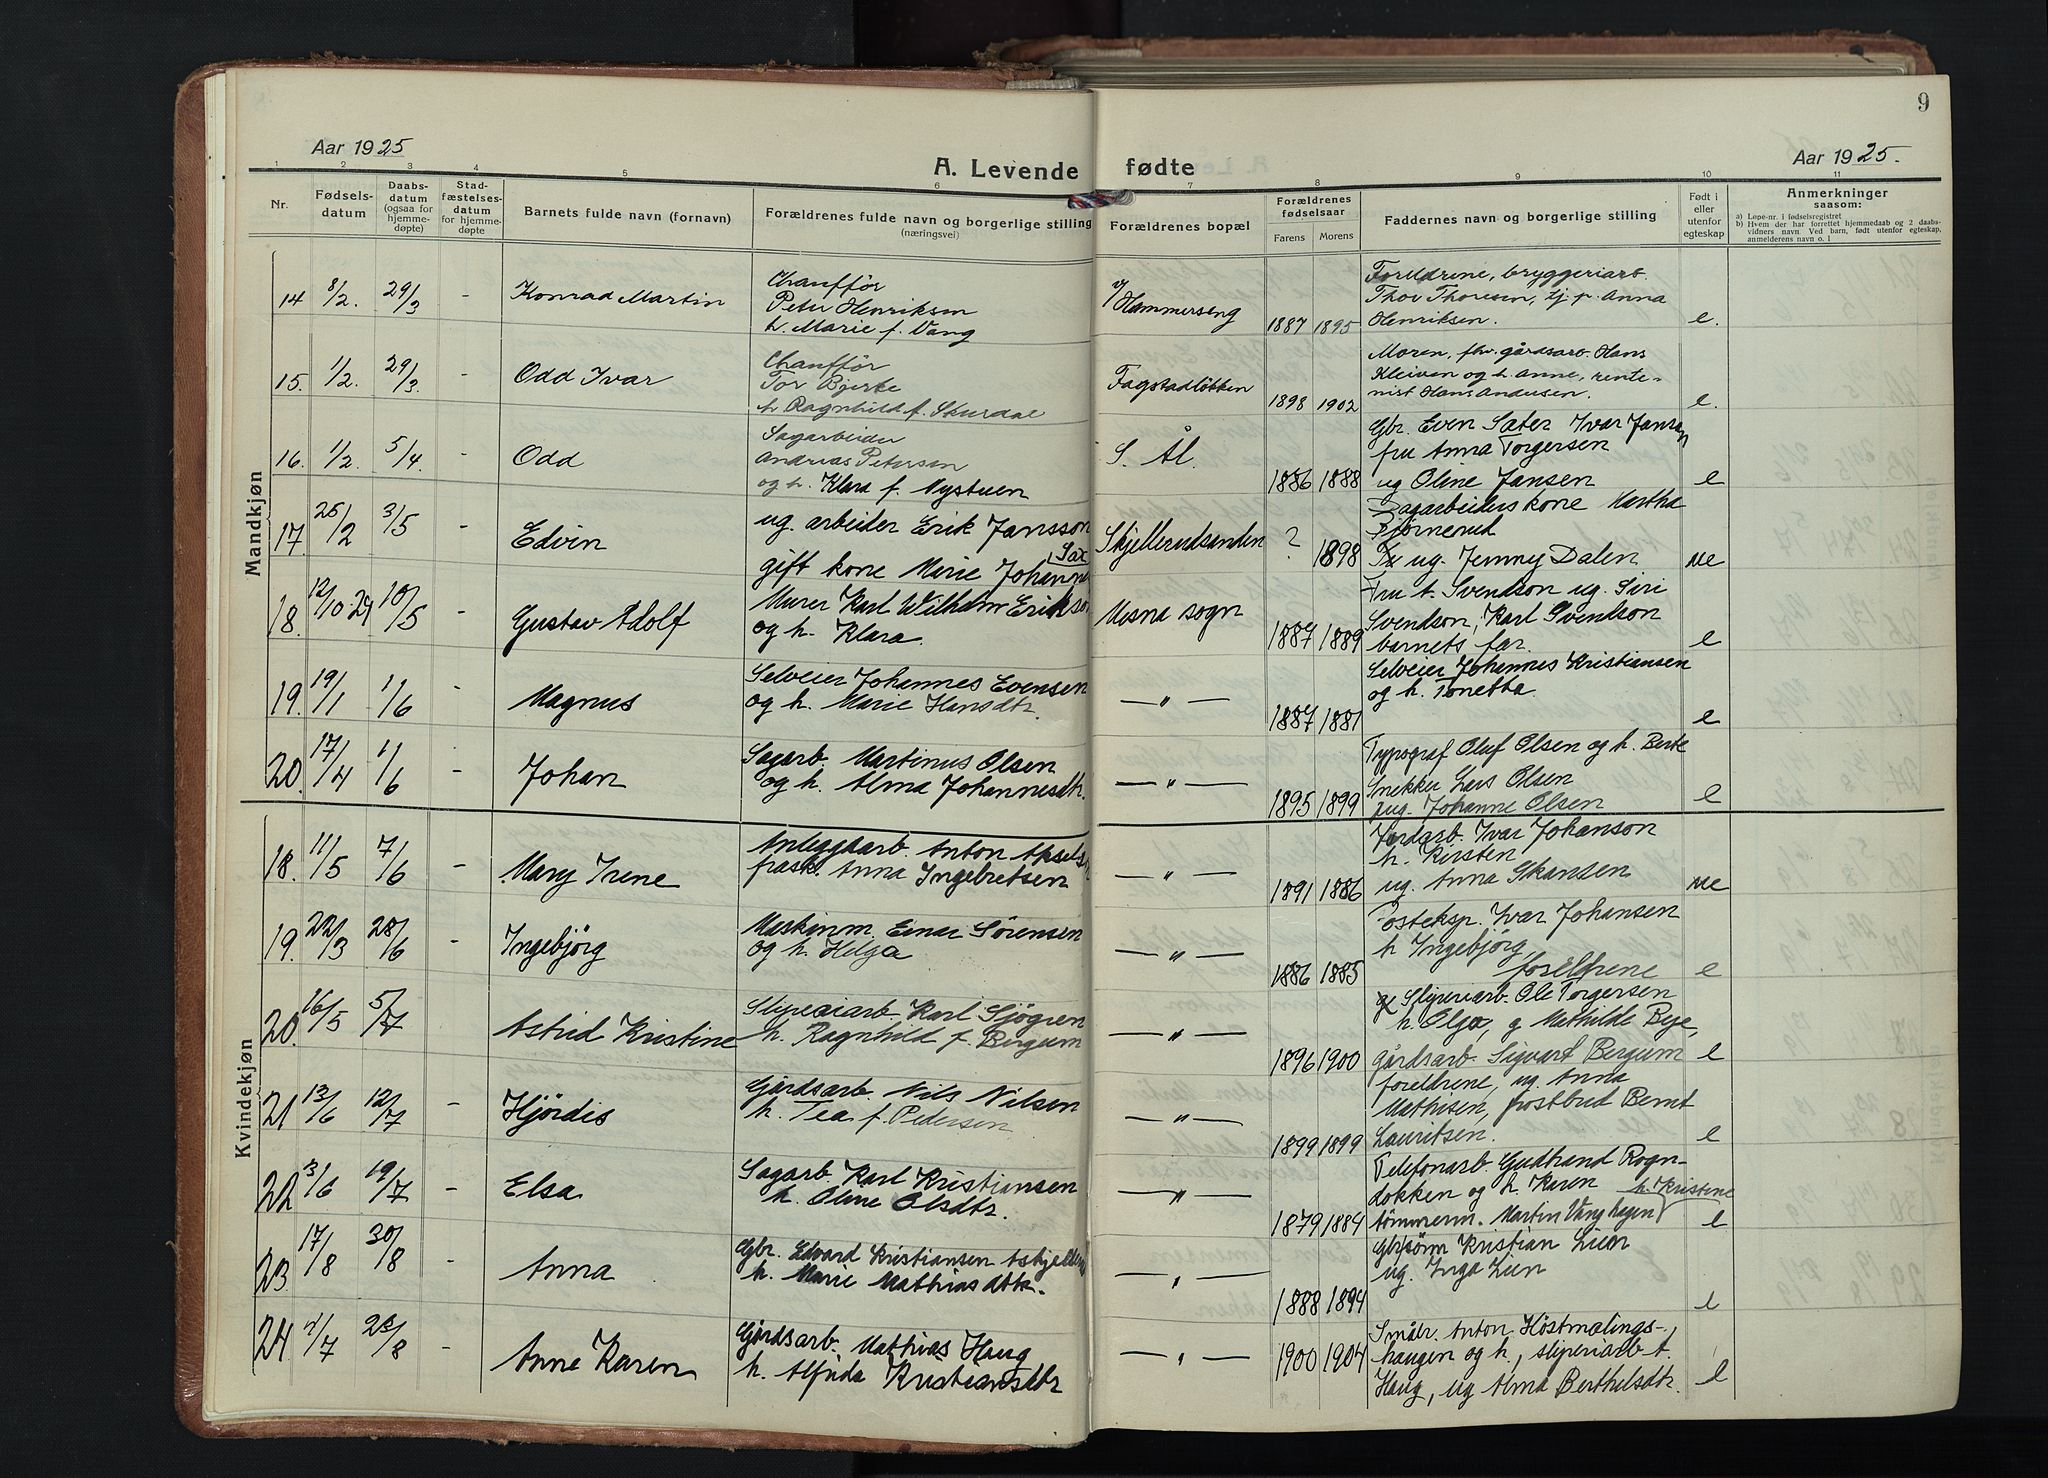 9
Aar 1925
A. Levende fødte
Aar 1925.
1 2 3 4 5 6 7 8 9 10 11
Nr.
Fødsels-
datum
Daabs-
datum
(ogsaa for
hjemme-
døpte)
Stad-
fæstelses-
datum
for hjemme-
døpte
Barnets fulde navn (fornavn)
Forældrenes fulde navn og borgerlige stilling
(næringsvei)
Forældrenes bopæl
Forældrenes
fødselsaar
Farens Morens
Faddernes navn og borgerlige stilling
Født i
eller
utenfor
egteskap
Anmerkninger
saasom:
a) Løpe-nr. i fødselsregistret
b) Hvem der har forrettet hjemmedaab og 2 daabs-
vidners navn. Ved barn, født utenfor egteskap,
anmelderens navn o. l
Mandkjøn
14 8/2. 29/3 - Konrad Martin
Chauffør
Peter Henriksen
h. Marie f. Vang
Hammerseng
1887 1895
Foreldrene, bryggeriarb.
Thov Thoresen, pj. p. Anna
Henriksen.
e.
15. 1/2. 29/3. - Odd Ivar
Chauffør
Tor Bjerke
h Ragnhild f. Skurdal
Fagstadløkken
1898 1902
Moren, fhv. gårdsarb. Hans
Kleiven og h. Anne, rente-
nist Hans Andersen.
e.
16. 1/2. 5/4. - Odd
Sagarbeider
Andreas Petersen
og h. Klara f. Nystuen
S. Ål.
1886 1888
Gbr. Even Sæter Ivar Jansen
fru Anna Torgersen
ug Oline Jansen
e
17. 25/2 3/5 - Edvin
ug. arbeider Erik Jansson
gift kone Marie Johanne Sax
Skjellerudsanden
? 1898
Sagarbeiderskone Martha
Bjørnerud
ug. Jenny Dalen
ue
18. 12/10.24 10/5 - Gustav Adolf
Murer Karl Wilhelm Erikson
og h. Klara.
Mesna sogn
1887 1889
Fru A. Svendson ug. Siri
Svendson, Karl Svendson
barnets far.
e
19. 19/1 1/6 - Magnus
Selveier Johannes Evensen
og h. Marie Hansdtr.
— " —
1887 1881
Selveier Johannes Kristiansen
og h. Tonetta
e
20. 17/4 1/6 - Johan
Sagarb. Martinus Olsen
og h. Alma Johannesdtr.
— " —
1895 1899
Typograf Oluf Olsen og h. Berte
Snekker Lars Olsen
ug. Johanne Olsen
e
Kvindekjøn
18. 11/5 7/6 - Mary Irene
Anleggsarb. Anton Aksels
frask. Anna Ingebretsen
— " —
1891 1886
Jordarb. Ivar Johanson
h. Kirsten
ug. Anna Skansen
ue
19. 22/3 28/6 - Ingebjörg
Maskinm. Einar Sörensen
og h. Helga
— " —
1886 1885
Posteksp. Ivar Johansen
h Ingebjörg
foreldrene
e
20. 16/5 5/7 - Astrid Kristine
Sliperiarb. Karl Sjögren
h. Ragnhild f. Bergum
— " —
1896 1900
Sliperiarb. Ole Torgersen
h. Olga, g Mathilde Bye,
gårdsarb. Sigvart Bergum
e
21 13/6 12/7 - Hjördis
Gårdsarb. Nils Nilsen
h. Tea f. Pedersen
— " —
1899 1899
foreldrene, ug. Anna
Mathisen, postbud Bernt
Lauritsen.
e
22 13/6 19/7 - Elsa
Sagarb. Karl Kristiansen
h. Oline Olsdtr.
— " —
1879 1884
Telefonarb. Gudbrand Rogn-
dokken og h. Karen h. Kristine
tömmerm. Martin Vanghagen
e
23. 17/8 30/8 - Anna
Gbr. Edvard Kristiansen
h. Marie Mathiasdtr.
— " —
1888 1894
Kristian Lien
ug. Inga Lien
e
24 7/7 23/8 - Anne Karen
Gårdsarb. Mathias Haug
h. Alfrida Kristiansdtr
— " —
1900 1904
Småbr. Anton Höstmælings-
haugen og h., sliperiarb. A.
Haug, ug Alma Berthelsdtr.
e